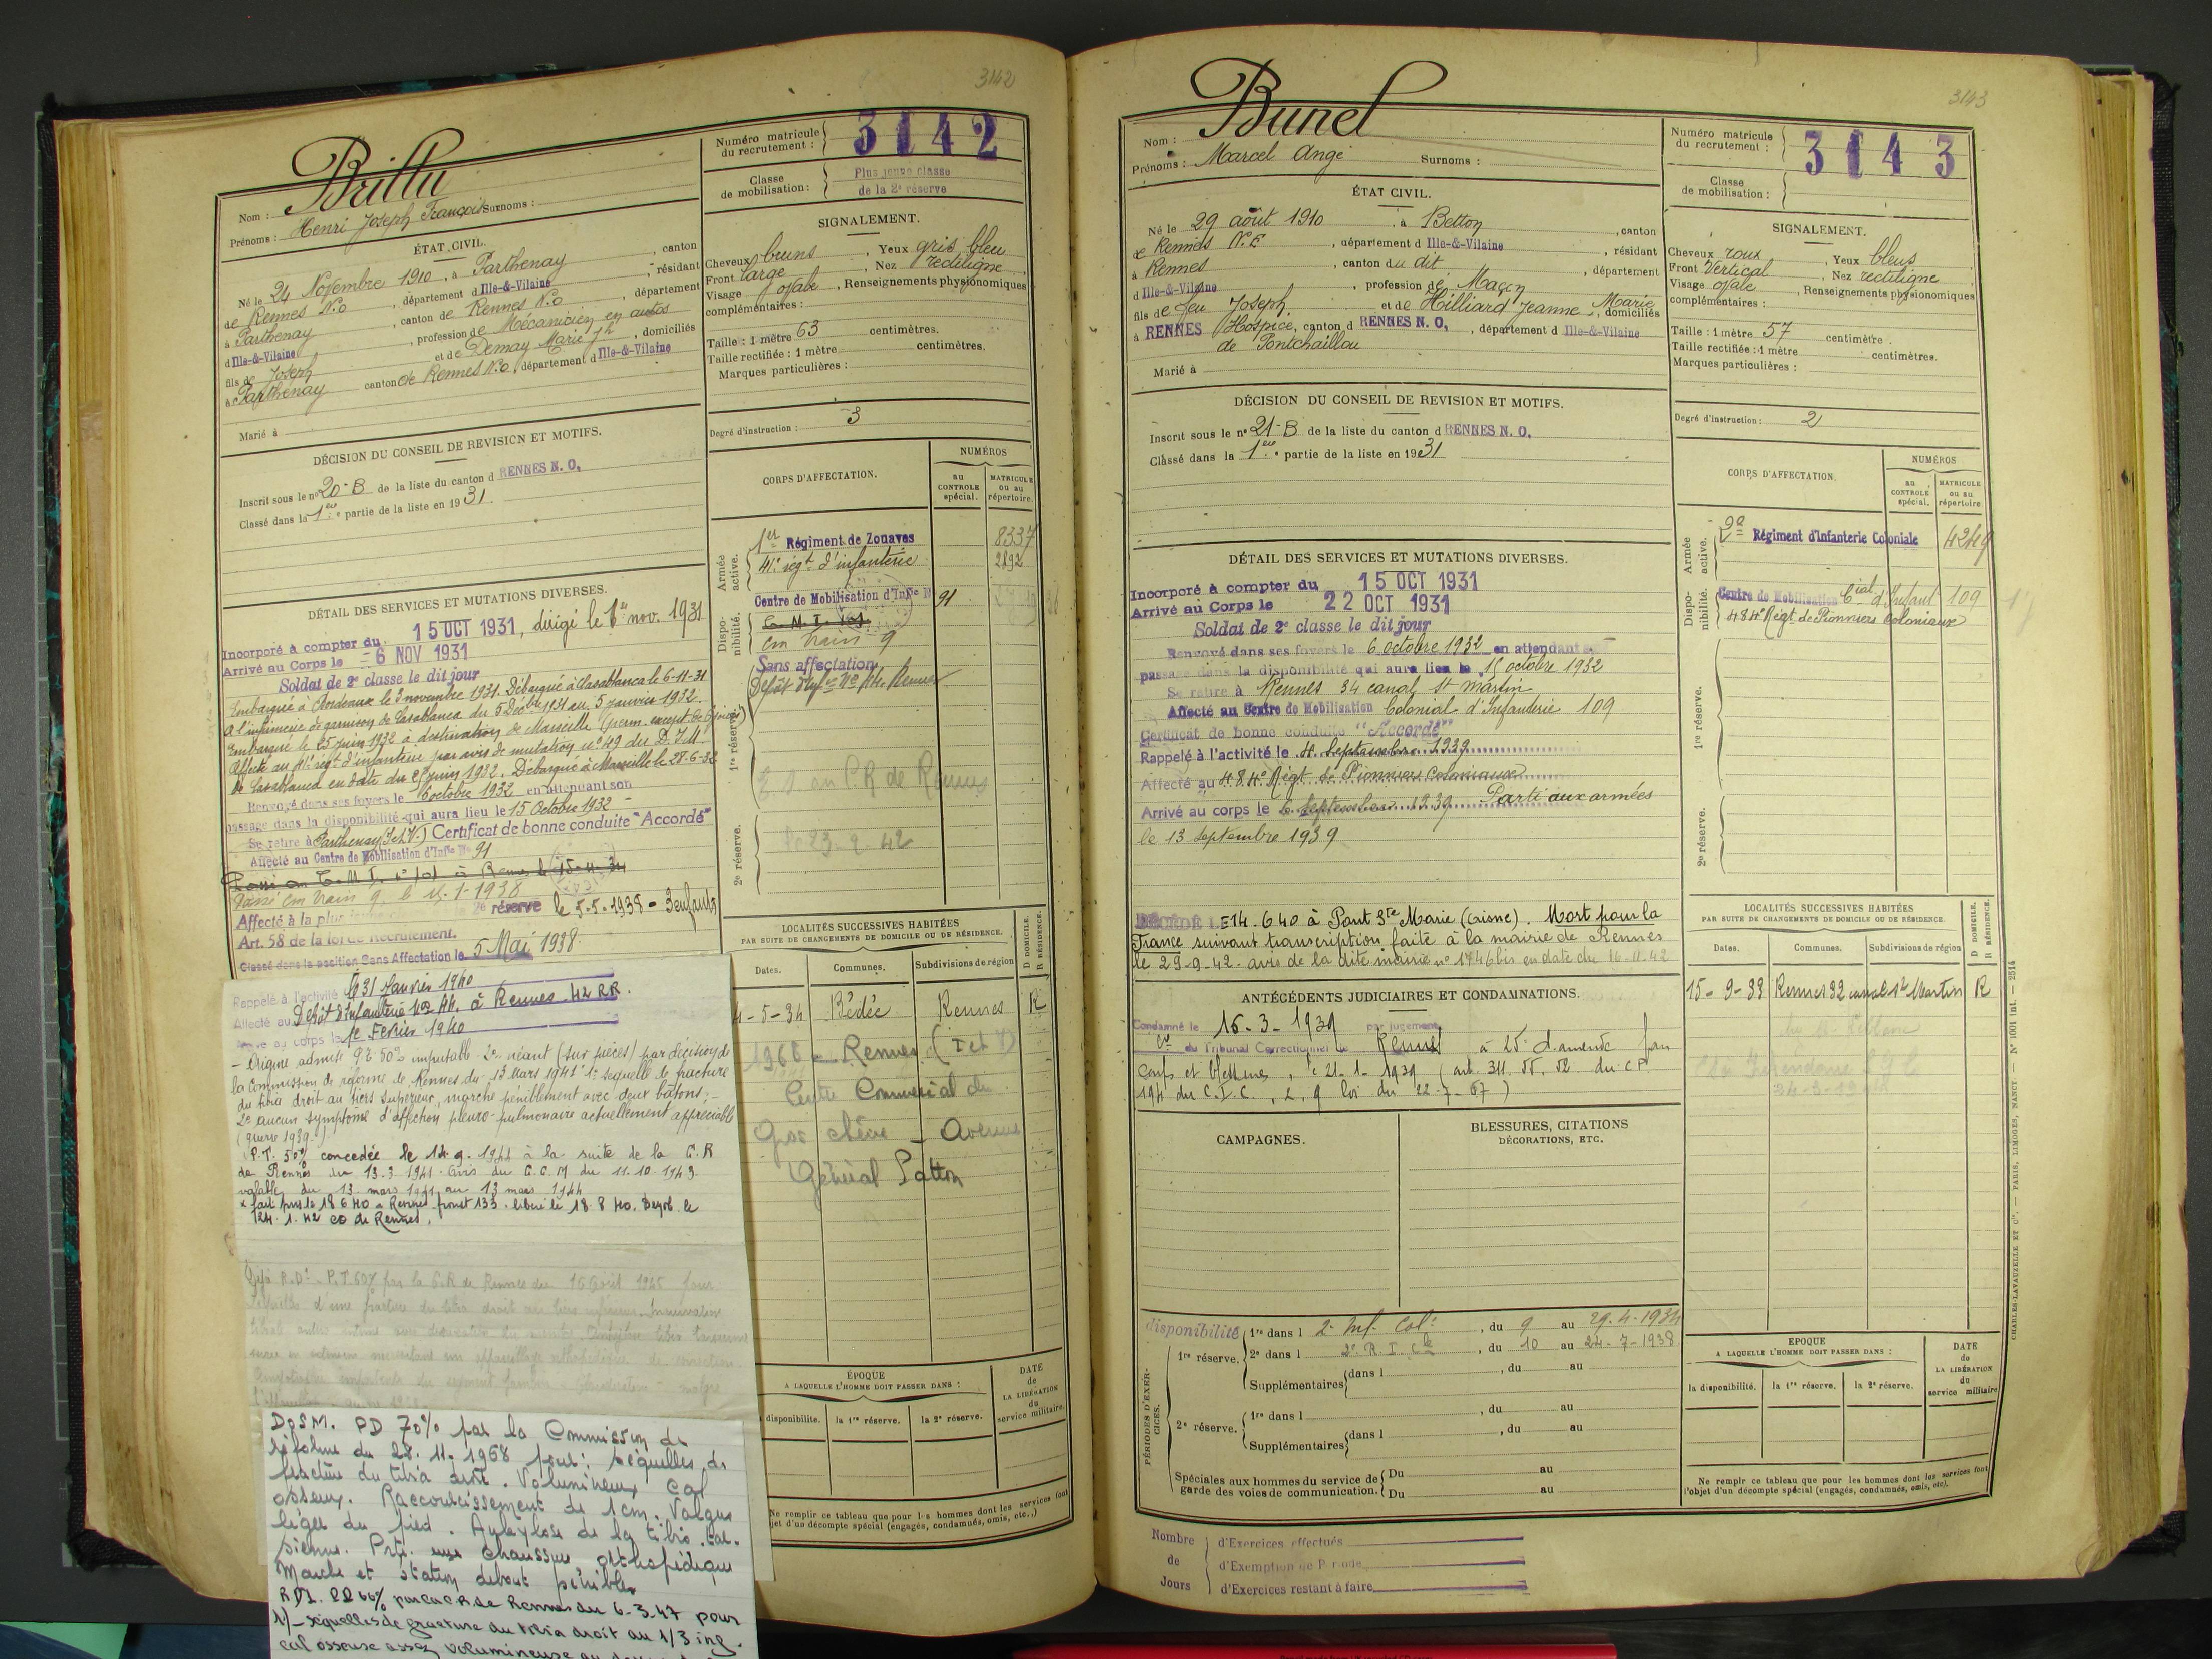 3142
Nom : Brillu
Prénoms : Henri Joseph François Surnoms :
ÉTAT CIVIL.
Né le 24 Novembre 1910, à Parthenay, canton
de Rennes N.O, département d Ille-&-Vilaine, résidant
à Parthenay, canton de Rennes N.O, département
d Ille-&-Vilaine, profession de Mécanicien en autos
fils de Joseph et de Demay Marie Jh, domiciliés
à Parthenay canton de Rennes N.O, département d Ille-&-Vilaine
Marié à
DÉCISION DU CONSEIL DE REVISION ET MOTIFS.
Inscrit sous le n° 20-B de la liste du canton d RENNES N. O.
Classé dans la 1ère partie de la liste en 1931.
DÉTAIL DES SERVICES ET MUTATIONS DIVERSES.
Incorporé à compter du 15 OCT 1931, dirigé le 1er nov. 1931
Arrivé au Corps le - 6 NOV 1931
Soldat de 2e classe le dit jour
Embarqué à Bordeaux le 3 novembre 1931. Débarqué à Casablanca le 6-11-31
A l'infirmerie de garnison de Casablanca du 5 Décbre 1931 au 5 janvier 1932.
Embarqué le 25 juin 1932 à destination de Marseille
Affecté au 41e régt d'infanterie par avis de mutation n° 49 du D.I.M.
de Casablanca en date du 25 juin 1932. Débarqué à Marseille le 28-6-32
Renvoyé dans ses foyers le 6 octobre 1932 en attendant son
passage dans la disponibilité qui aura lieu le 15 Octobre 1932
Se retire à Parthenay (I et V.) Certificat de bonne conduite "Accordé"
Affecté au Centre de Mobilisation d'Infie N° 91
Passé au C.M.I. n° 101 à Rennes le 15-11-34
Passé Cm train 9, le 15-1-1938
Affecté à la plus 2e réserve le 5-5-1938 - 3 enfants
Art. 58 de la loi de Recrutement.
Classé dans la position Sans Affectation le 5 Mai 1938.
Rappelé à l'activité le 31 Janvier 1940
Affecté au Dépôt d'Infanterie N°2 44. à Rennes 42 RR.
Arrivé au corps le 1e Février 1940
- Origine admise 9% 50% imputable - 2° néant (sur pièces) par décision de
la Commission de réforme de Rennes du 13 Mars 1941 1° séquelle de fracture
du tibia droit au tiers supérieur, marche péniblement avec deux bâtons ; -
2° aucun symptôme d'affection pleuro-pulmonaire actuellement appréciable
(guerre 1939.)
P.T. 50% concédée le 14.9.1944 à la suite de la C.R
de Rennes du 13-3-1941. Avis du C.C.M du 11.10.1943
valable du 13 mars 1941 au 13 mars 1944
x fait pris le 18 6 40 à Rennes front 133. libéré le 18.8 40. Démob. le
124.1.42 CO de Rennes.
D.P.S.M. PD 70% par la Commission de
réforme du 28.11.1968 pour : séquelles de
fracture du tibia droit. Volumineux cal
osseux. Raccourcissement de 1 cm. Valgus
léger du pied. Ankylose de la tibio-tar-
sienne. Port chaussure orthopédique
Marche et station debout pénibles
RDI. PD 60% par la C.R de Rennes du 6-3-47 pour
1°/- séquelles de fracture du tibia droit au 1/3 inf.
cal osseuse assez volumineuse
Numéro matricule du recrutement : 3142
Classe de mobilisation : Plus jeune classe
de la 2e réserve
SIGNALEMENT.
Cheveux bruns, Yeux gris bleu
Front large, Nez rectiligne
Visage ovale, Renseignements physionomiques
complémentaires :
Taille : 1 mètre 63 centimètres.
Taille rectifiée : 1 mètre centimètres.
Marques particulières :
Degré d'instruction : 3
CORPS D'AFFECTATION.
NUMÉROS
au CONTROLE spécial.
MATRICULE ou au répertoire.
Armée active.
1er Régiment de Zouaves 8337
41e régt d'infanterie 2892
Disponibilité.
Centre de Mobilisation d'Infie N° 91
C.M.I. 101
Cm train 9
Sans affectation
Dépôt d'Infie N°2 44. Rennes
1re réserve.
2e réserve.
LOCALITÉS SUCCESSIVES HABITÉES
PAR SUITE DE CHANGEMENTS DE DOMICILE OU DE RÉSIDENCE.
Dates. Communes. Subdivisions de région D DOMICILE. R RÉSIDENCE.
4-5-34 Bédée Rennes R
1968 - Rennes (I et V)
Centre Commercial du
Gros chêne - Avenue
Général Patton
ÉPOQUE
A LAQUELLE L'HOMME DOIT PASSER DANS :
la disponibilité. la 1re réserve. la 2e réserve.
DATE de LA LIBÉRATION du service militaire.
Ne remplir ce tableau que pour les hommes dont les services font
l'objet d'un décompte spécial (engagés, condamnés, omis, etc..)
3143
Nom : Bunel
Prénoms : Marcel Ange Surnoms :
ÉTAT CIVIL.
Né le 29 août 1910, à Betton, canton
de Rennes N.E, département d Ille-&-Vilaine, résidant
à Rennes, canton du dit, département
d Ille-&-Vilaine, profession de Maçon
fils de feu Joseph et de Hilliard Jeanne Marie, domiciliés
à RENNES Hospice, canton d RENNES N. O, département d Ille-&-Vilaine
de Pontchaillou
Marié à
DÉCISION DU CONSEIL DE REVISION ET MOTIFS.
Inscrit sous le n° 21-B de la liste du canton d RENNES N. O.
Classé dans la 1ère partie de la liste en 1931
DÉTAIL DES SERVICES ET MUTATIONS DIVERSES.
Incorporé à compter du 15 OCT 1931
Arrivé au Corps le 22 OCT 1931
Soldat de 2e classe le dit jour
Renvoyé dans ses foyers le 6 octobre 1932 en attendant
passage dans la disponibilité qui aura lieu le 15 octobre 1932
Se retire à Rennes 34 canal St Martin
Affecté au Centre de Mobilisation Colonial d'Infanterie 109
Certificat de bonne conduite "Accordé"
Rappelé à l'activité le 4 Septembre 1939
Affecté au 484e Régt de Pionniers Coloniaux
Arrivé au corps le 6 Septembre 1939 Parti aux armées
le 13 Septembre 1939
DÉCÉDÉ LE 14.6 40 à Pont Ste Marie (Aisne). Mort pour la
France suivant transcription faite à la mairie de Rennes
le 29-9-42. avis de la dite mairie n° 1746 bis en date du 16.11.42
ANTÉCÉDENTS JUDICIAIRES ET CONDAMNATIONS.
Condamné le 16-3-1939 par jugement
du Tribunal Correctionnel de Rennes à 25f d'amende pour
coups et blessures, le 21-1-1939 (art. 311, 55, 52 du C.P.
194 du C.I.C., 2, 9 loi du 22-7-67)
CAMPAGNES.
BLESSURES, CITATIONS
DÉCORATIONS, ETC.
PÉRIODES D'EXERCICES.
disponibilité
1re réserve.
1re dans l 2e Inf. Colle, du 9 au 29.4.1934
2e dans l 2e R.I.Cle, du 10 au 24-7-1938
Supplémentaires dans l , du au
2e réserve.
1re dans l , du au
Supplémentaires dans l , du au
Spéciales aux hommes du service de garde des voies de communication. Du au
Du au
Nombre de Jours
d'Exercices effectués
d'Exemption de Période
d'Exercices restant à faire
Numéro matricule du recrutement : 3143
Classe de mobilisation :
SIGNALEMENT.
Cheveux roux, Yeux bleus
Front Vertical, Nez rectiligne
Visage ovale, Renseignements physionomiques
complémentaires :
Taille : 1 mètre 57 centimètre.
Taille rectifiée : 1 mètre centimètres.
Marques particulières :
Degré d'instruction : 2
CORPS D'AFFECTATION
NUMÉROS
au CONTROLE spécial.
MATRICULE ou au répertoire
Armée active.
2e Régiment d'Infanterie Coloniale 4249
Disponibilité.
Centre de Mobilisation Cial d'Infant 109
484e Régt de Pionniers Coloniaux
1re réserve.
2e réserve.
LOCALITÉS SUCCESSIVES HABITÉES
PAR SUITE DE CHANGEMENTS DE DOMICILE OU DE RÉSIDENCE.
Dates. Communes. Subdivisions de région D DOMICILE. R RÉSIDENCE.
15-9-33 Rennes 32 canal St Martin R
EPOQUE
A LAQUELLE L'HOMME DOIT PASSER DANS :
la disponibilité. la 1re réserve. la 2e réserve.
DATE de LA LIBÉRATION du service militaire
Ne remplir ce tableau que pour les hommes dont les services font
l'objet d'un décompte spécial (engagés, condamnés, omis, etc).
CHARLES-LAVAUZELLE ET Cie. — PARIS, LIMOGES, NANCY — N° 1001 int. — 2514